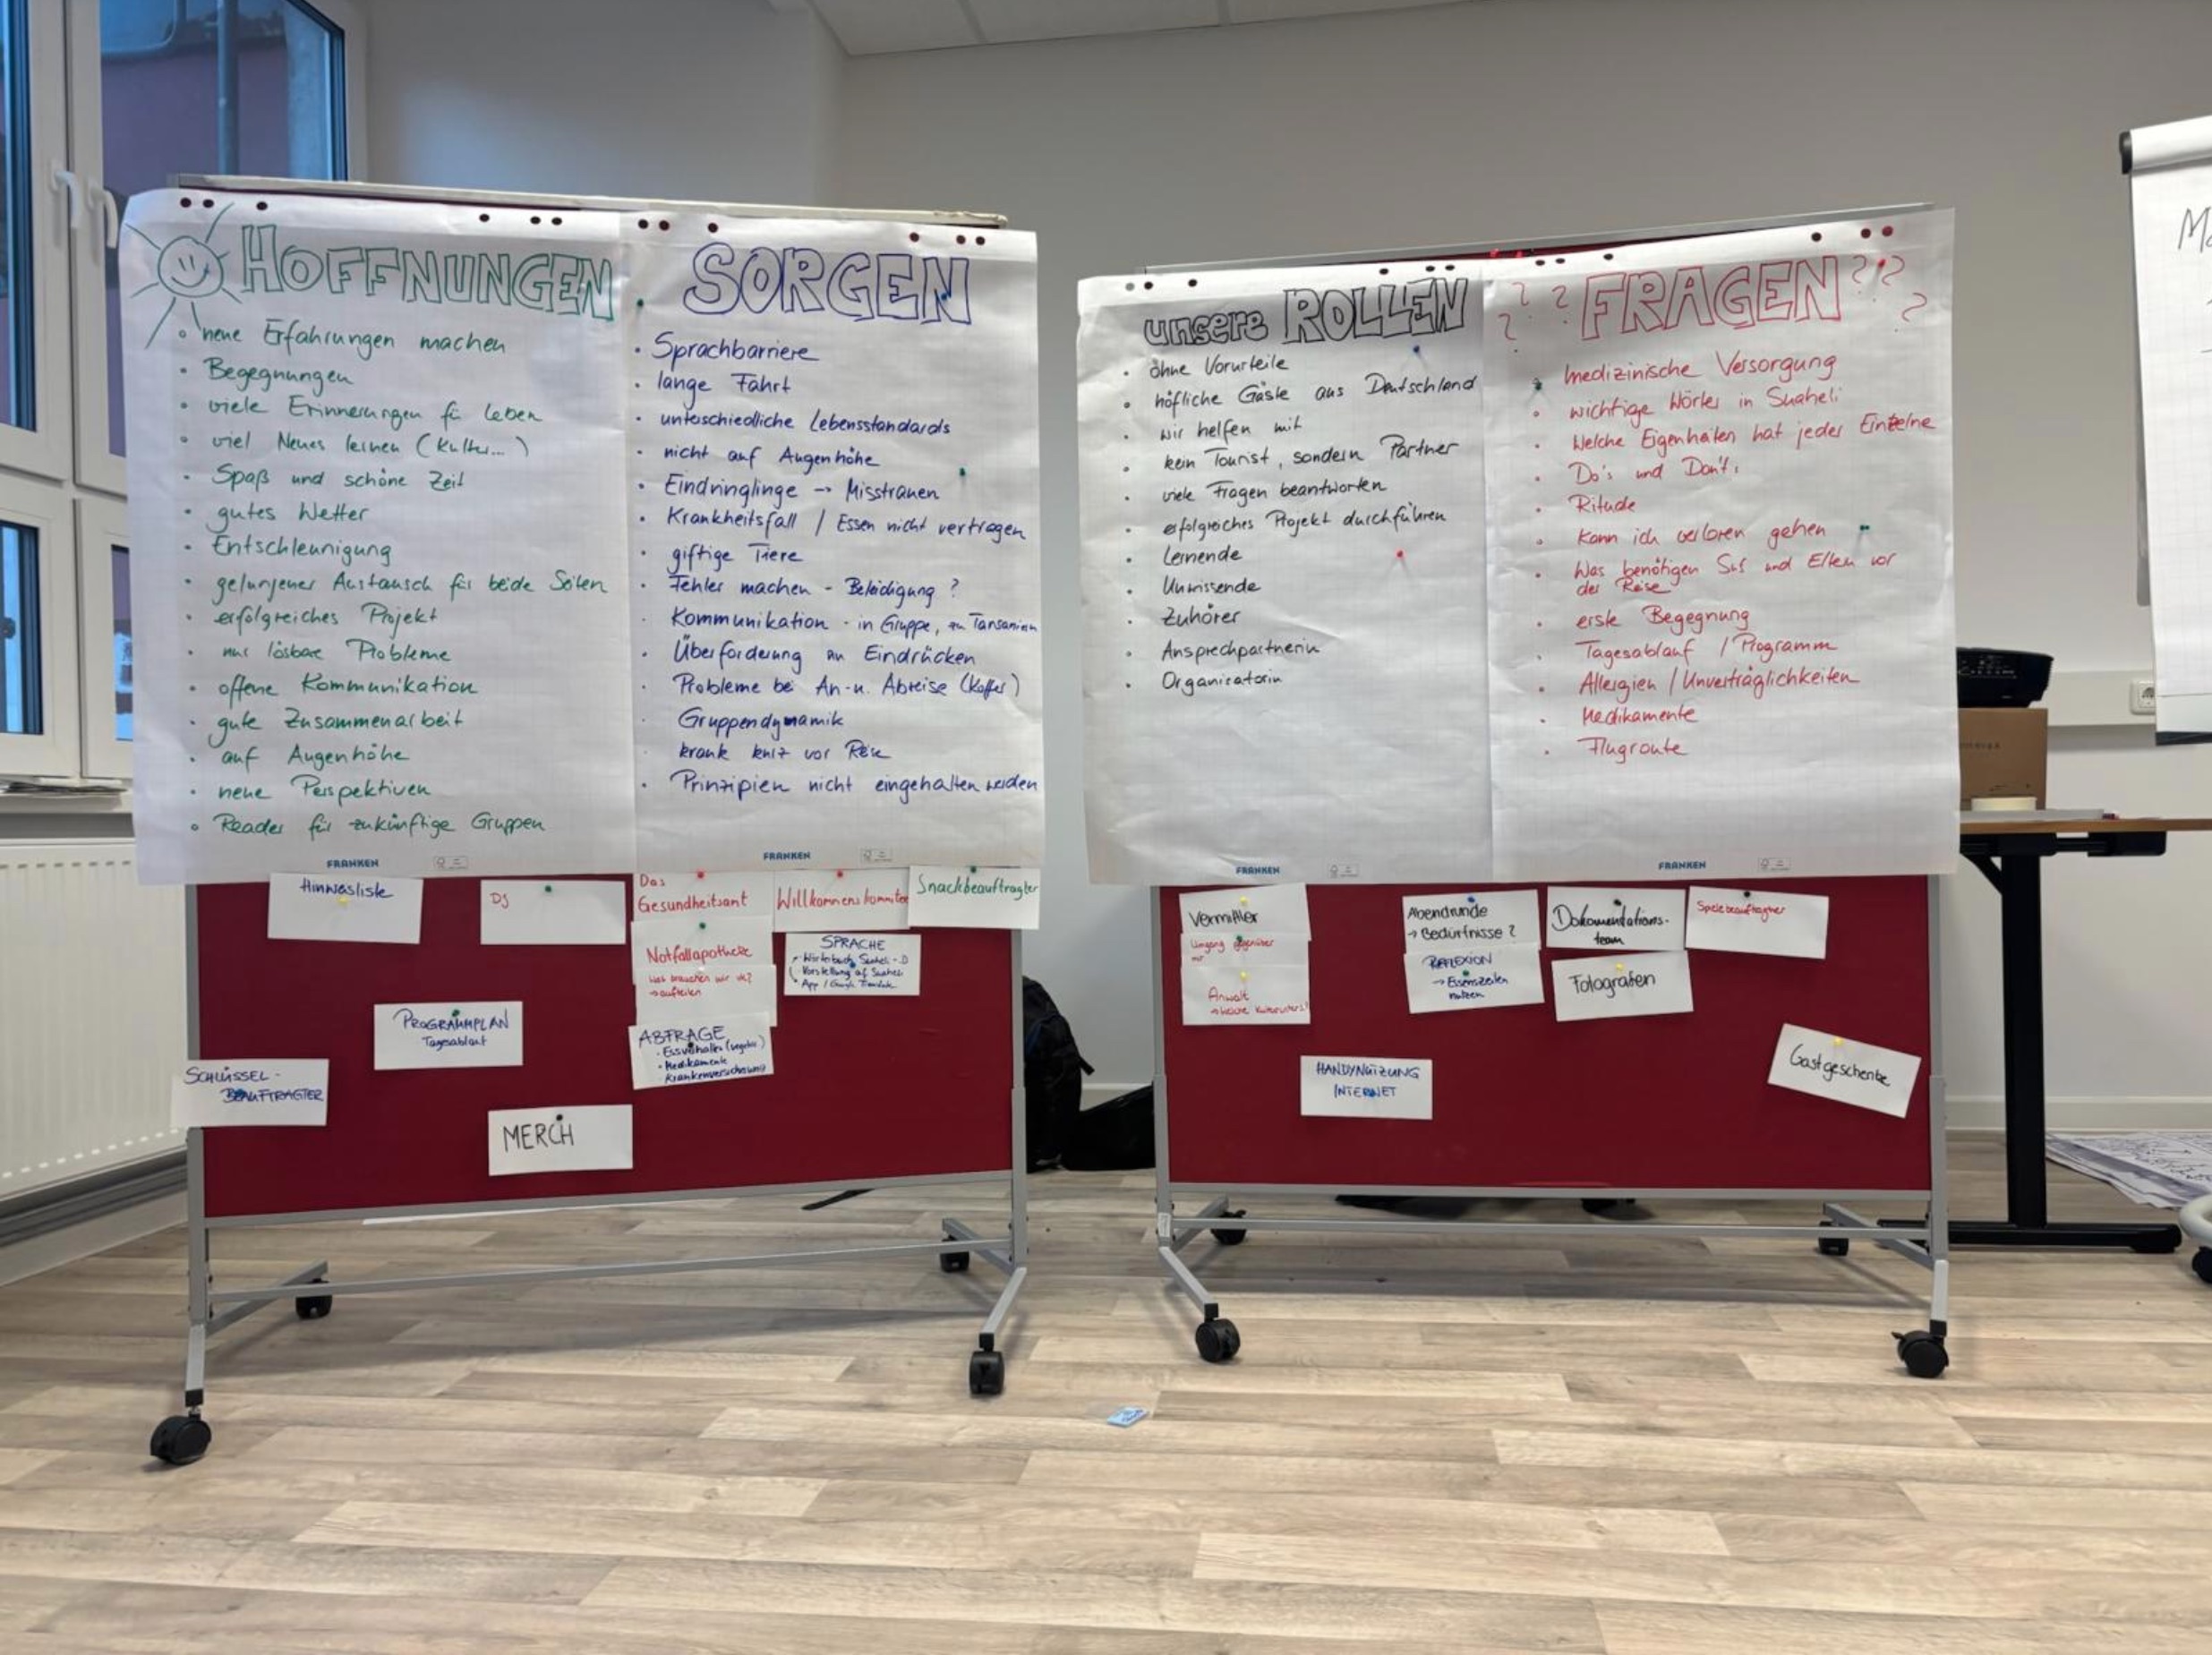 HOFFNUNGEN
neue Erfahrungen machen
Begegnungen
viele Erinnerungen für Leben
viel Neues lernen (Kultur...)
Spaß und schöne Zeit
gutes Wetter
Entschleunigung
gelungener Austausch für beide Seiten
erfolgreiches Projekt
nur lösbare Probleme
offene Kommunikation
gute Zusammenarbeit
auf Augenhöhe
neue Perspektiven
Reader für zukünftige Gruppen
FRANKEN
SORGEN
Sprachbarriere
lange Fahrt
unterschiedliche Lebensstandards
nicht auf Augenhöhe
Eindringlinge → Misstrauen
Krankheitsfall / Essen nicht vertragen
giftige Tiere
Fehler machen - Beleidigung ?
Kommunikation - in Gruppe, zu Tansaniern
Überforderung an Eindrücken
Probleme bei An- u. Abreise (Koffer)
Gruppendynamik
krank kurz vor Reise
Prinzipien nicht eingehalten werden
FRANKEN
Hinweisliste
DJ
Das
Gesundheitsamt
Willkommenskomitee
Snackbeauftragter
Notfallapotheke
was brauchen wir
→ aufteilen
SPRACHE
Wörterbuch Suaheli - D
Vorstellung auf Suaheli
App / Google Translate
PROGRAMMPLAN
Tagesablauf
ABFRAGE
Essverhalten
Medikamente
Krankenversicherung
SCHLÜSSEL-
BEAUFTRAGTER
MERCH
unsere ROLLEN
ohne Vorurteile
höfliche Gäste aus Deutschland
wir helfen mit
kein Tourist, sondern Partner
viele Fragen beantworten
erfolgreiches Projekt durchführen
Lernende
Unwissende
Zuhörer
Ansprechpartnerin
Organisatorin
FRANKEN
? ? ? FRAGEN ? ? ?
medizinische Versorgung
wichtige Wörter in Suaheli
Welche Eigenheiten hat jeder Einzelne
Do's und Don't's
Rituale
Kann ich verloren gehen
Was benötigen SuS und Eltern vor
der Reise
erste Begegnung
Tagesablauf / Programm
Allergien / Unverträglichkeiten
Medikamente
Flugroute
FRANKEN
Vermittler
Umgang gegenüber
mir
Anwalt
Abendrunde
→ Bedürfnisse ?
REFLEXION
→ Essenszeiten
nutzen
Dokumentations-
team
Spielebeauftragter
Fotografen
HANDYNUTZUNG
INTERNET
Gastgeschenke